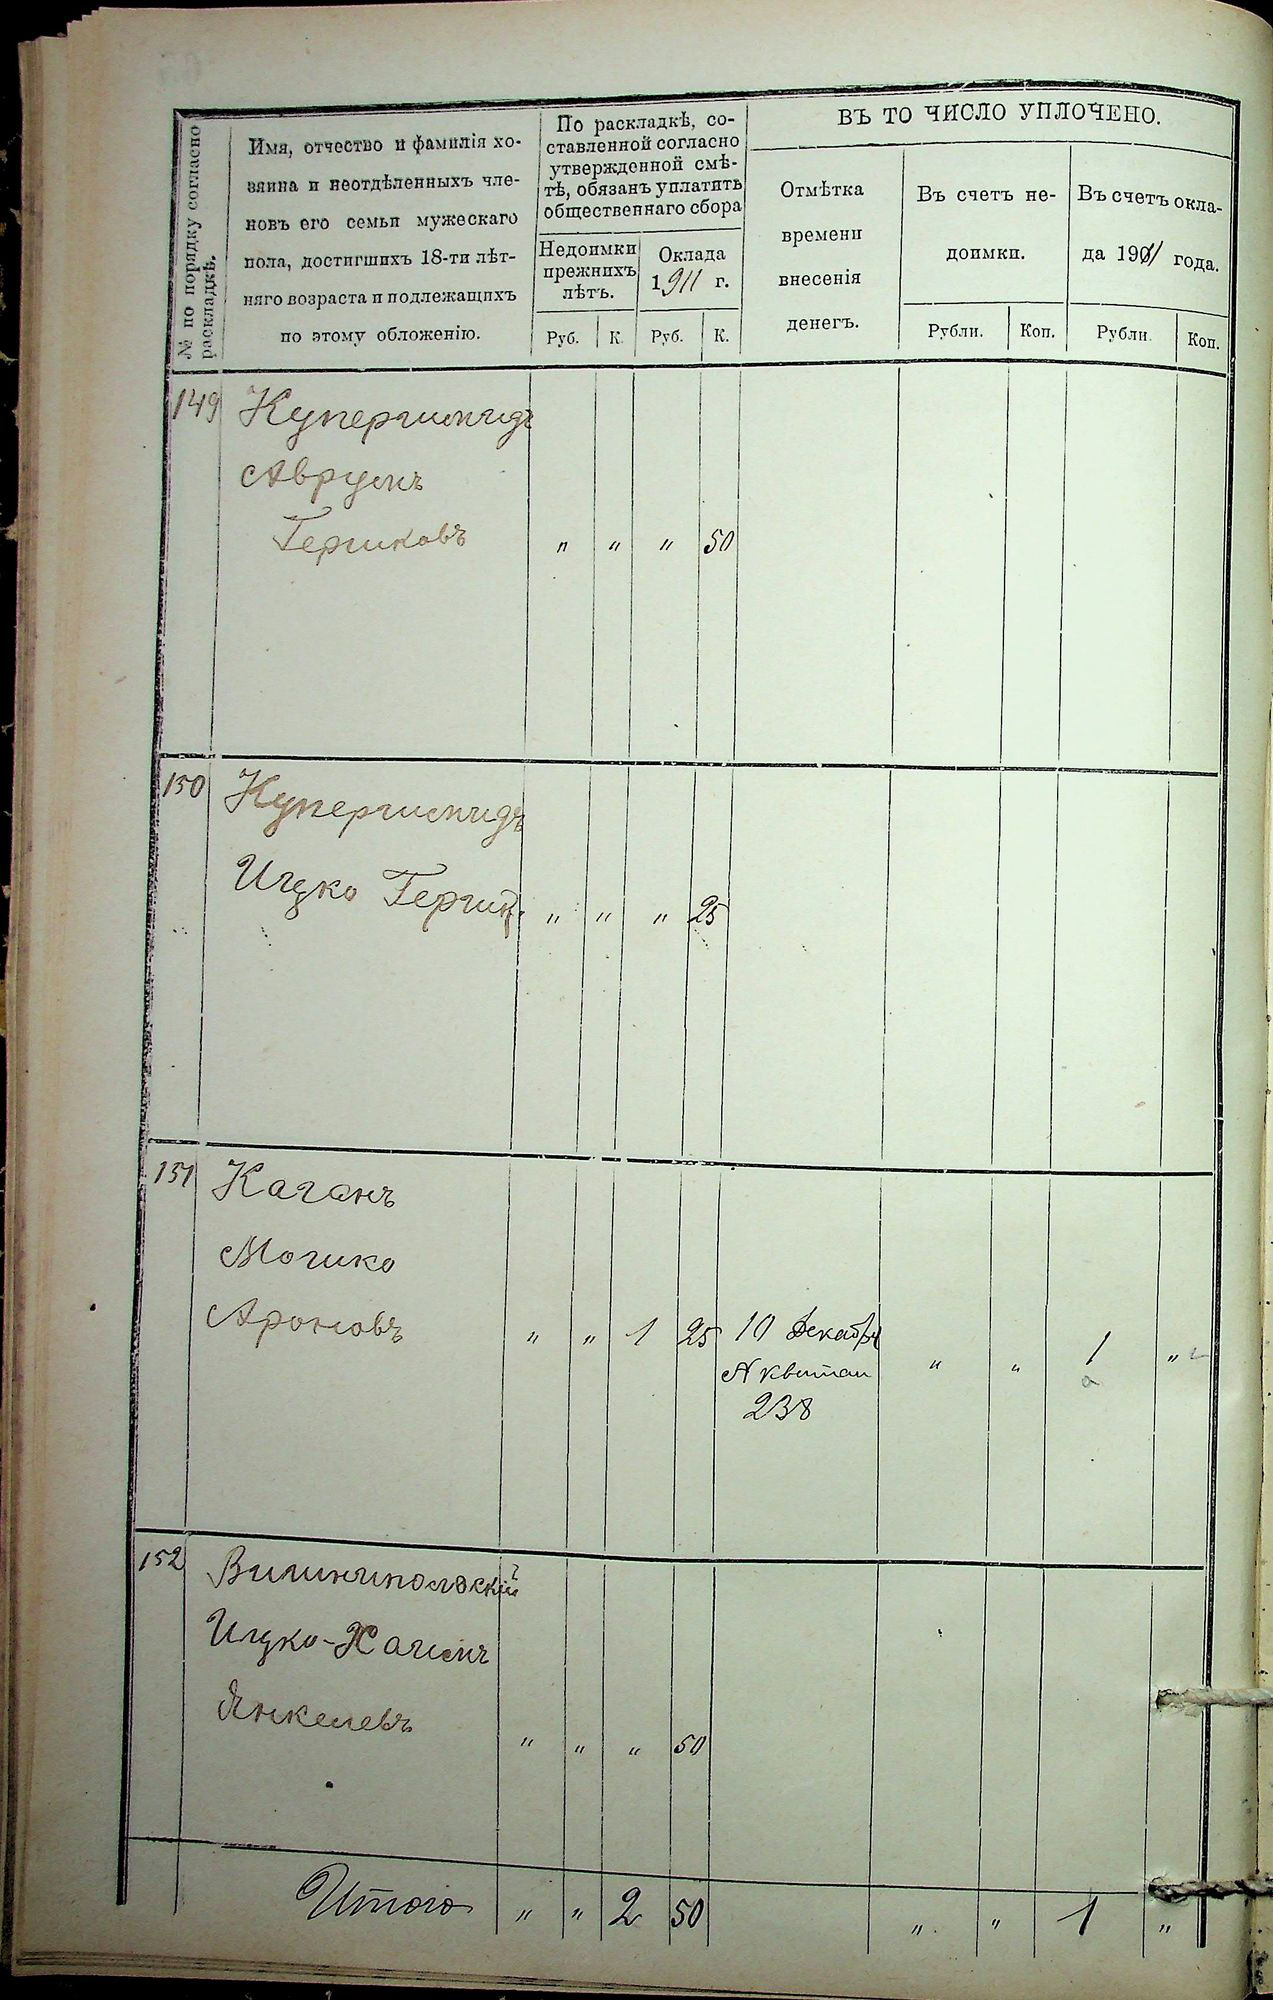 № по порядку согласно раскладкѣ.
Имя, отчество и фамилія хо-
зяина и неотдѣленныхъ чле-
новъ его семьи мужескаго
пола, достигшихъ 18-ти лѣт-
няго возраста и подлежащихъ
по этому обложенію.
По раскладкѣ, со-
ставленной согласно
утвержденной смѣ-
тѣ, обязанъ уплатить
общественнаго сбора
Недоимки
прежнихъ
лѣтъ.
Оклада
1911 г.
Руб. К. Руб. К.
ВЪ ТО ЧИСЛО УПЛОЧЕНО.
Отмѣтка
времени
внесенія
денегъ.
Въ счетъ не-
доимки.
Рубли. Коп.
Въ счетъ окла-
да 1911 года.
Рубли. Коп.
149 Купершмидъ
Аврумъ
Гершковъ " " " 50
150 Купершмидъ
Ицко Гершк. " " " 25
151 Каганъ
Мошко
Ароновъ " " 1 25 10 Декабря " " 1 "
№ квитан
238
152 Вишнипольскій
Ицко-Хаимъ
Янкелевъ " " " 50
Итого " " 2 50 " " 1 "